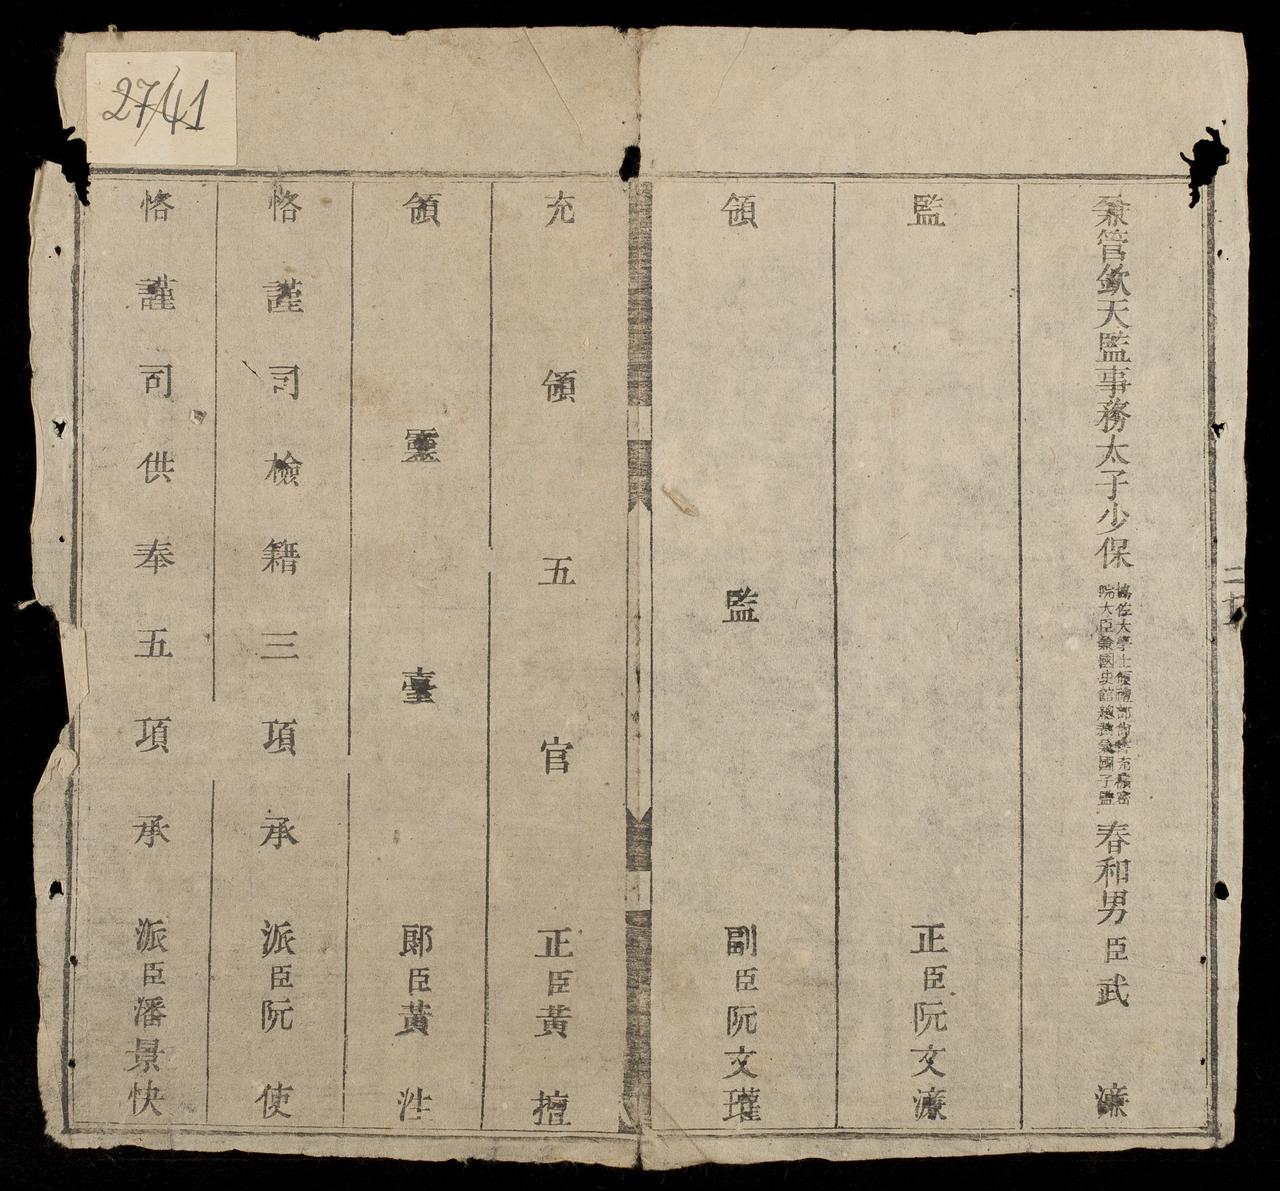 27/41
兼管欽天監事務太子少保
協佐大學士領禮部尚書充機密
院大臣兼國史館總裁兼國子監
春和男臣武濂
監正臣阮文濂
領監副臣阮文瓘
充領五官正臣黃擅
領靈臺郎臣黃
恪謹司檢籍三項承派臣阮使
恪謹司供奉五項承派臣潘景快